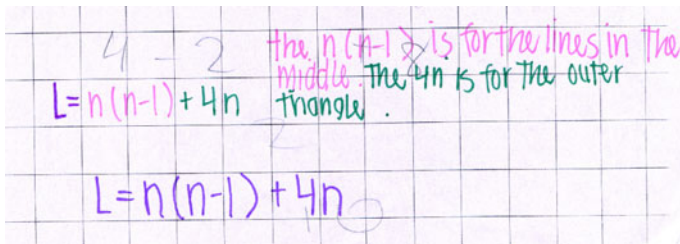 4 - 2
the n(n-1) is for the lines in the
middle. The 4n is for the outer
L=n(n-1)+4n triangle.
L=n(n-1)+4n